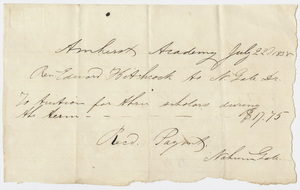 Amherst Academy July 22d
Rev Edward Hitchcock to N. Gale Dr.
To tuition for three scholars during
the term - - - - - $17,75
Recd. Payment,
Nahum Gale.